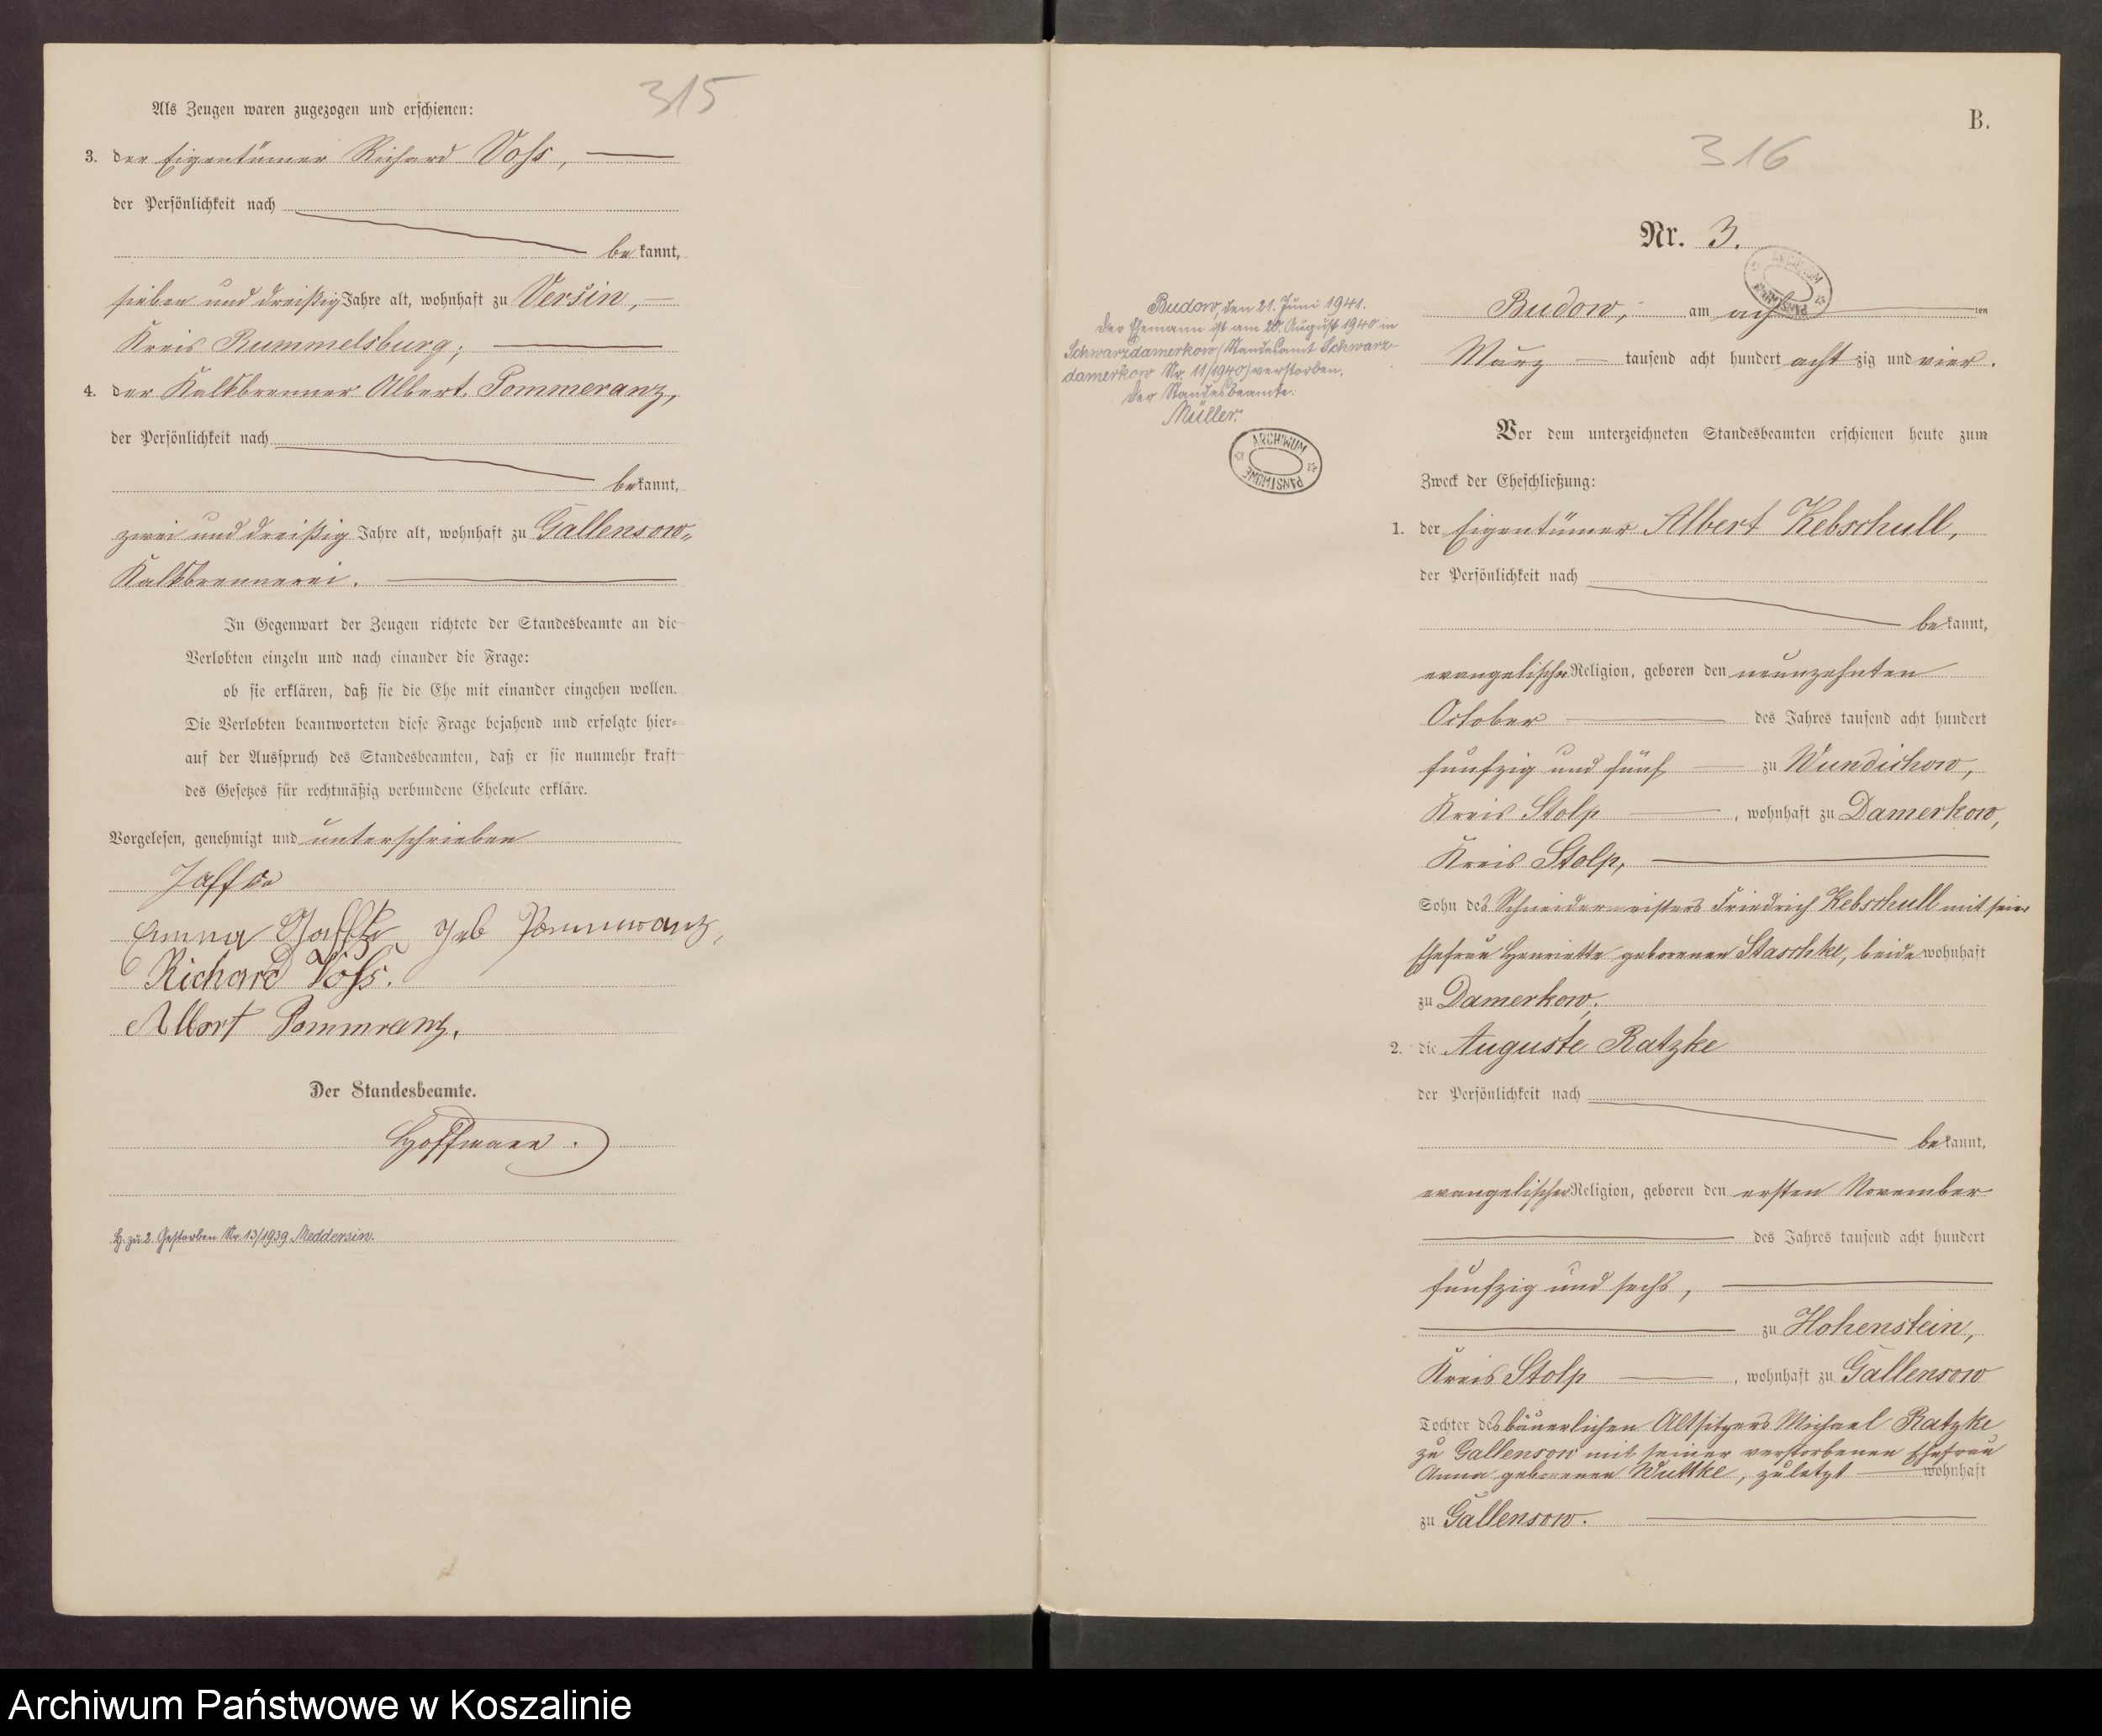 315
Als Zeugen waren zugezogen und erschienen:
3. der Eigentümer Richard Voss,
der Persönlichkeit nach
bekannt,
sieben und dreißig Jahre alt, wohnhaft zu Versin,
Kreis Rummelsburg;
4. der Kalkbrenner Albert Pommeranz,
der Persönlichkeit nach
bekannt,
zwei und dreißig Jahre alt, wohnhaft zu Gallensow-
Kalkbrennerei.
In Gegenwart der Zeugen richtete der Standesbeamte an die
Verlobten einzeln und nach einander die Frage:
ob sie erklären, daß sie die Ehe mit einander eingehen wollen.
Die Verlobten beantworteten diese Frage bejahend und erfolgte hier-
auf der Ausspruch des Standesbeamten, daß er sie nunmehr kraft
des Gesetzes für rechtmäßig verbundene Eheleute erkläre.
Vorgelesen, genehmigt und unterschrieben
Jaffke
Anna Jaffke geb Pommeranz,
Richard Voss.
Albert Pommranz.
Der Standesbeamte.
Hoffmann.
H. zu 2. Gestorben Nr. 13/1939 Meddersin.
B.
316
Nr. 3.
ARCHIWUM PAŃSTWOWE
Budow, am acht ten
März tausend acht hundert achtzig und vier.
Budow, den 21. Juni 1941.
Der Ehemann ist am 28. August 1940 in
Schwarzdamerkow (Standesamt Schwarz-
damerkow Nr. 11/1940) verstorben.
Der Standesbeamte:
Müller.
ARCHIWUM PAŃSTWOWE
Vor dem unterzeichneten Standesbeamten erschienen heute zum
Zweck der Eheschließung:
1. der Eigentümer Albert Kebschull,
der Persönlichkeit nach
bekannt,
evangelischer Religion, geboren den neunzehnten
October des Jahres tausend acht hundert
funfzig und fünf zu Wundichow,
Kreis Stolp, wohnhaft zu Damerkow,
Kreis Stolp,
Sohn des Schneidermeisters Friedrich Kebschull mit seiner
Ehefrau Henriette geborenen Staschke, beide wohnhaft
zu Damerkow;
2. die Auguste Ratzke
der Persönlichkeit nach
bekannt,
evangelischer Religion, geboren den ersten November
des Jahres tausend acht hundert
funfzig und sechs,
zu Hohenstein,
Kreis Stolp, wohnhaft zu Gallensow
Tochter des bäuerlichen Altsitzers Michael Ratzke
zu Gallensow mit seiner verstorbenen Ehefrau
Anna geborenen Wuttke, zuletzt wohnhaft
zu Gallensow.
Archiwum Państwowe w Koszalinie